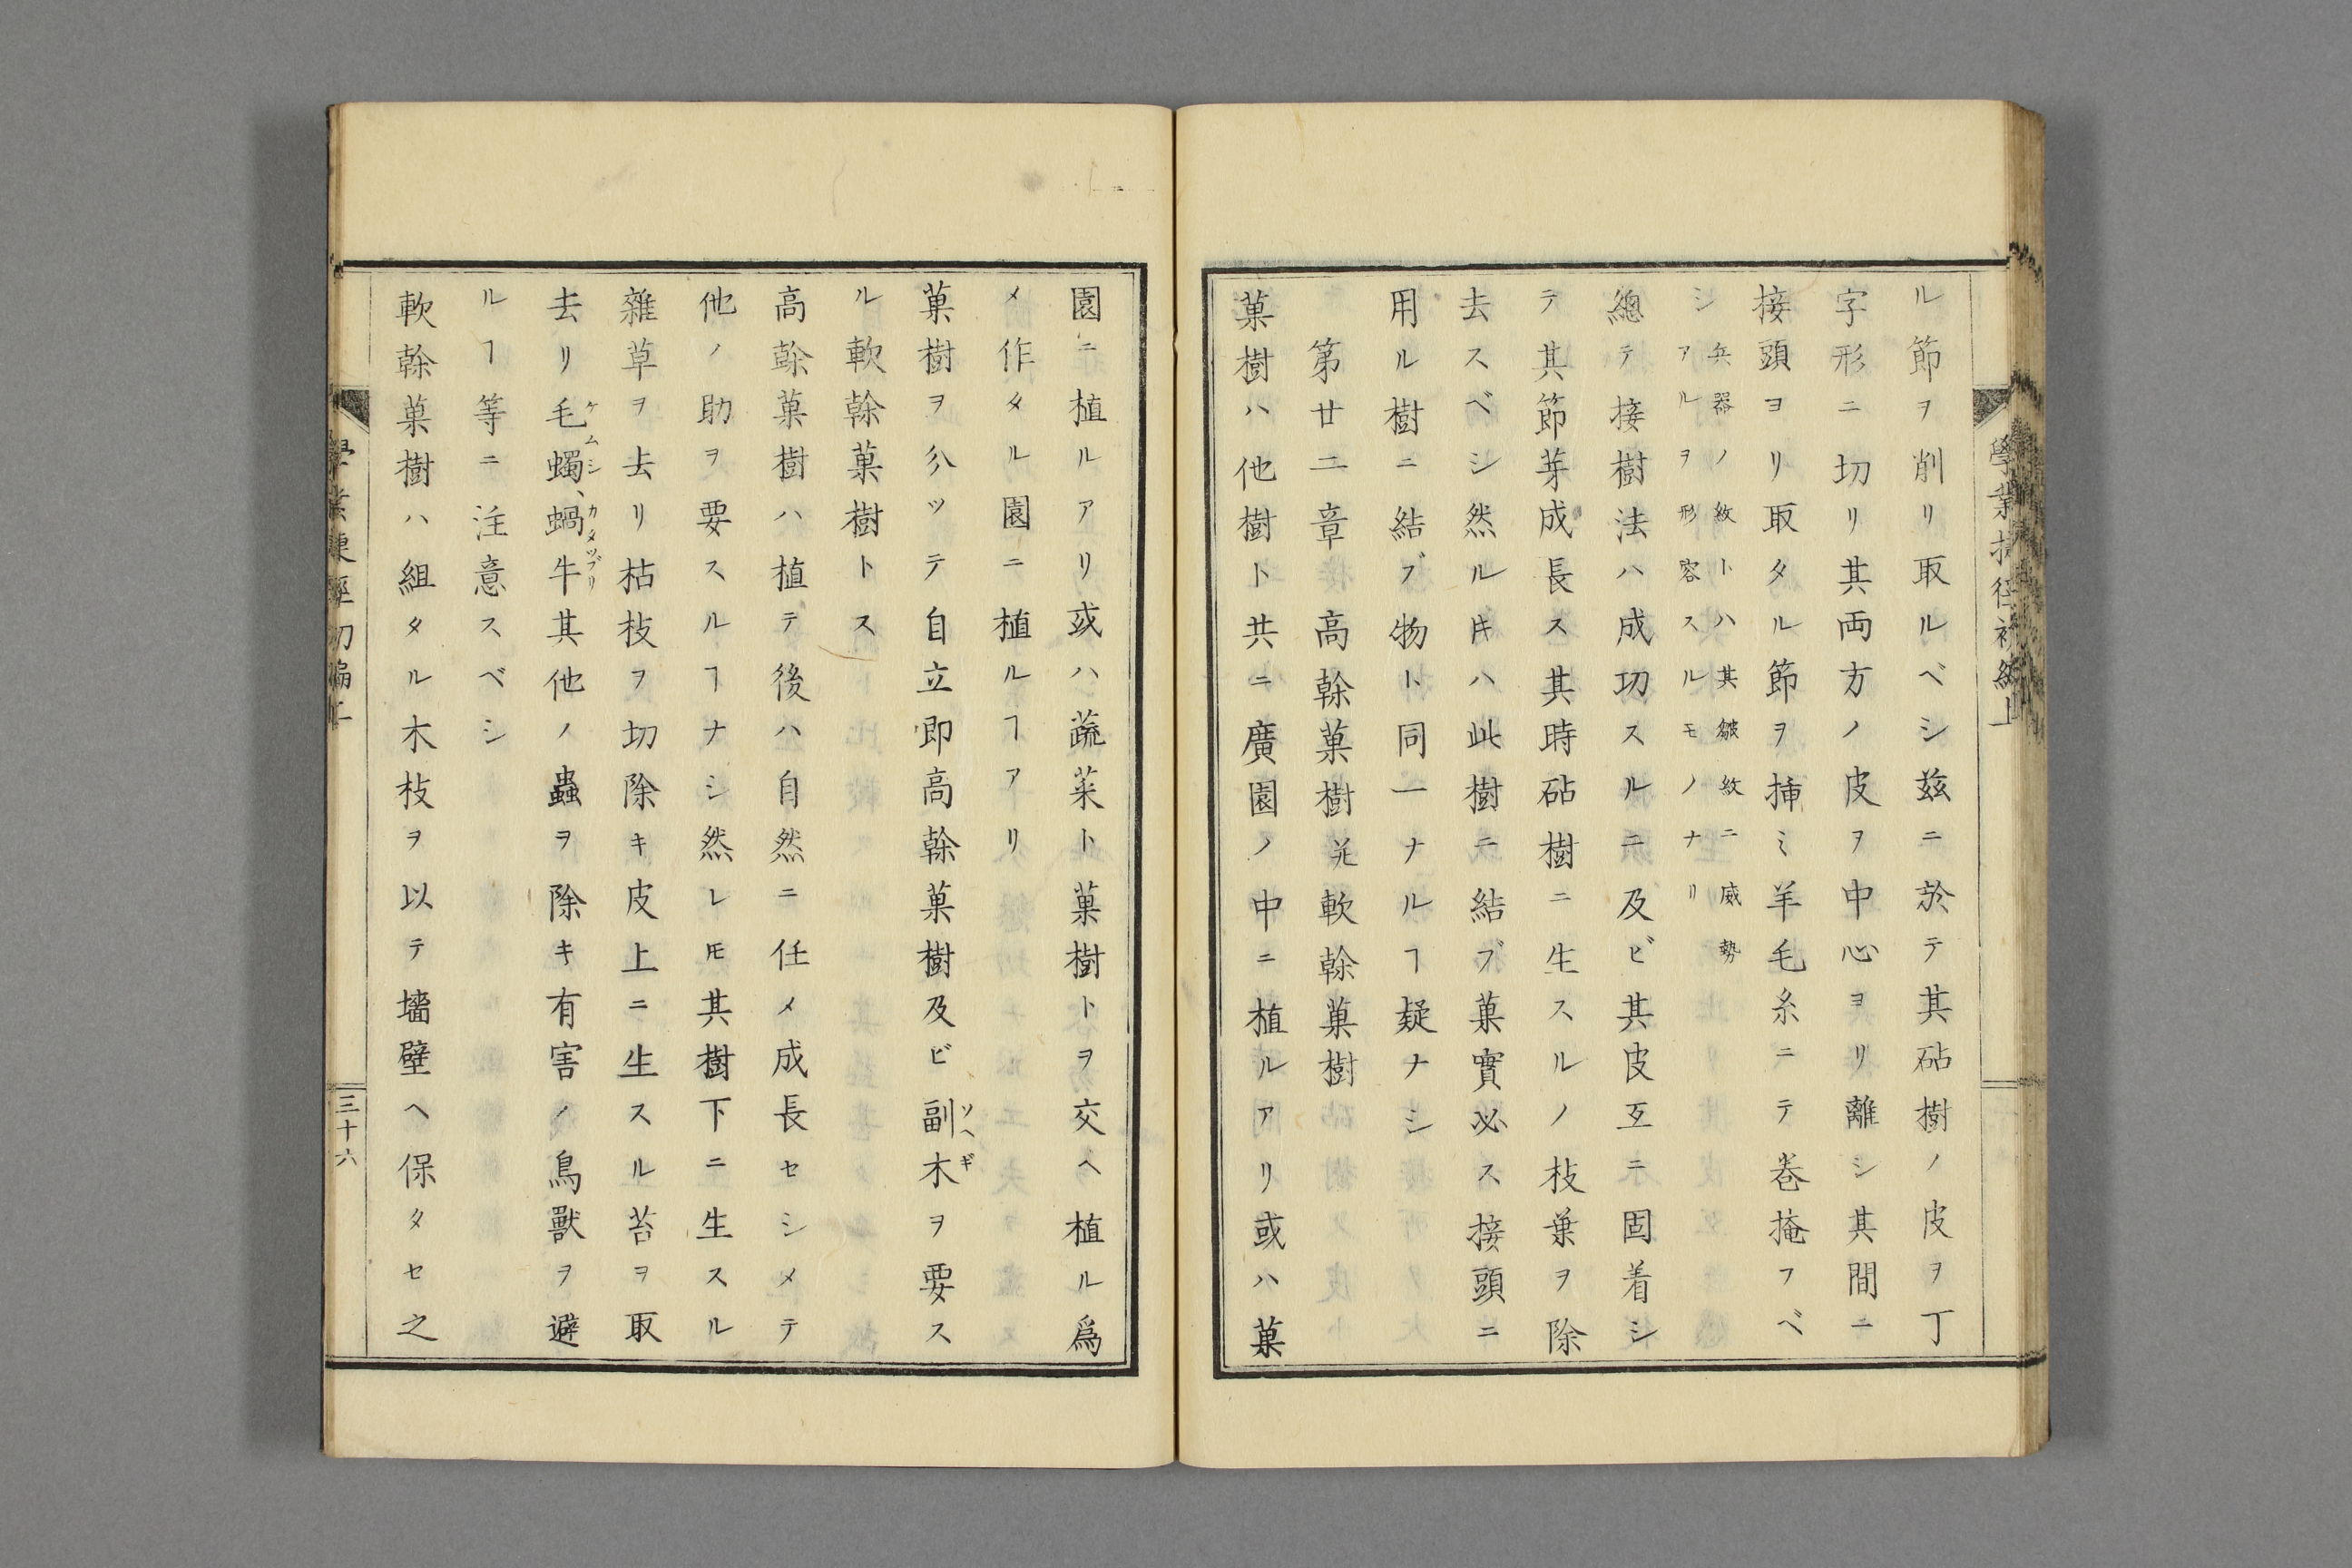 ル節ヲ削リ取ルベシ玆ニ於テ其砧樹ノ皮ヲ丁
字形ニ切リ其両方ノ皮ヲ中心ヨリ離シ其間ニ
接頭ヨリ取タル節ヲ揷ミ羊毛糸ニテ巻掩フベ
シ兵器ノ紋トハ其皴紋ニ威勢
アルヲ形容スルモノナリ
總テ接樹法ハ成切スルニ及ビ其皮互ニ固着シ
テ其節芽成長ス其時砧樹ニ生スルノ枝葉ヲ除
去スベシ然ルㇳキハ此樹ニ結ブ菓實必ス接頭ニ
用ル樹ニ結ブ物ト同一ナルヿ疑ナシ
第廿二章高幹菓樹並軟幹菓樹
菓樹ハ他樹ト共ニ廣園ノ中ニ植ルアリ或ハ菓
園ニ植ルアリ或ハ蔬菜ト菓樹トヲ交ヘ植ル爲
メ作タル園ニ植ルヿアリ
菓樹ヲ分ツテ自立即高幹菓樹及ビ副木ヲ要ス
ソヘギ
ル軟幹菓樹トス
高幹菓樹ハ植テ後ハ自然ニ任メ成長セシメテ
他ノ助ヲ要スルヿナシ然レ𪜈其樹下ニ生スル
雜草ヲ去リ枯枝ヲ切除キ皮上ニ生スル苔ヲ取
去リ毛蠋、蝸牛其他ノ蟲ヲ除キ有害ノ鳥獸ヲ避
ケムシ カタツブリ
ルヿ等ニ注意スベシ
軟幹菓樹ハ組タル木枝ヲ以テ墻壁ヘ保タセ之
三十六